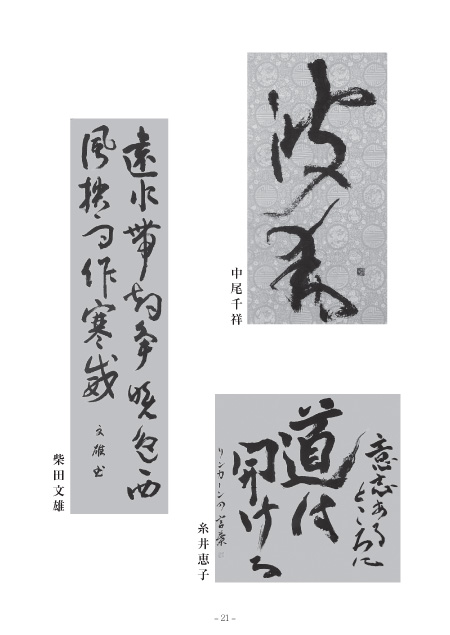 波
中尾千祥
意志ある
ところに
道は
開ける
リンカーンの言葉
糸井恵子
遠水帯争晩色西
風挟雨作寒威
文雄書
柴田文雄
- 21 -